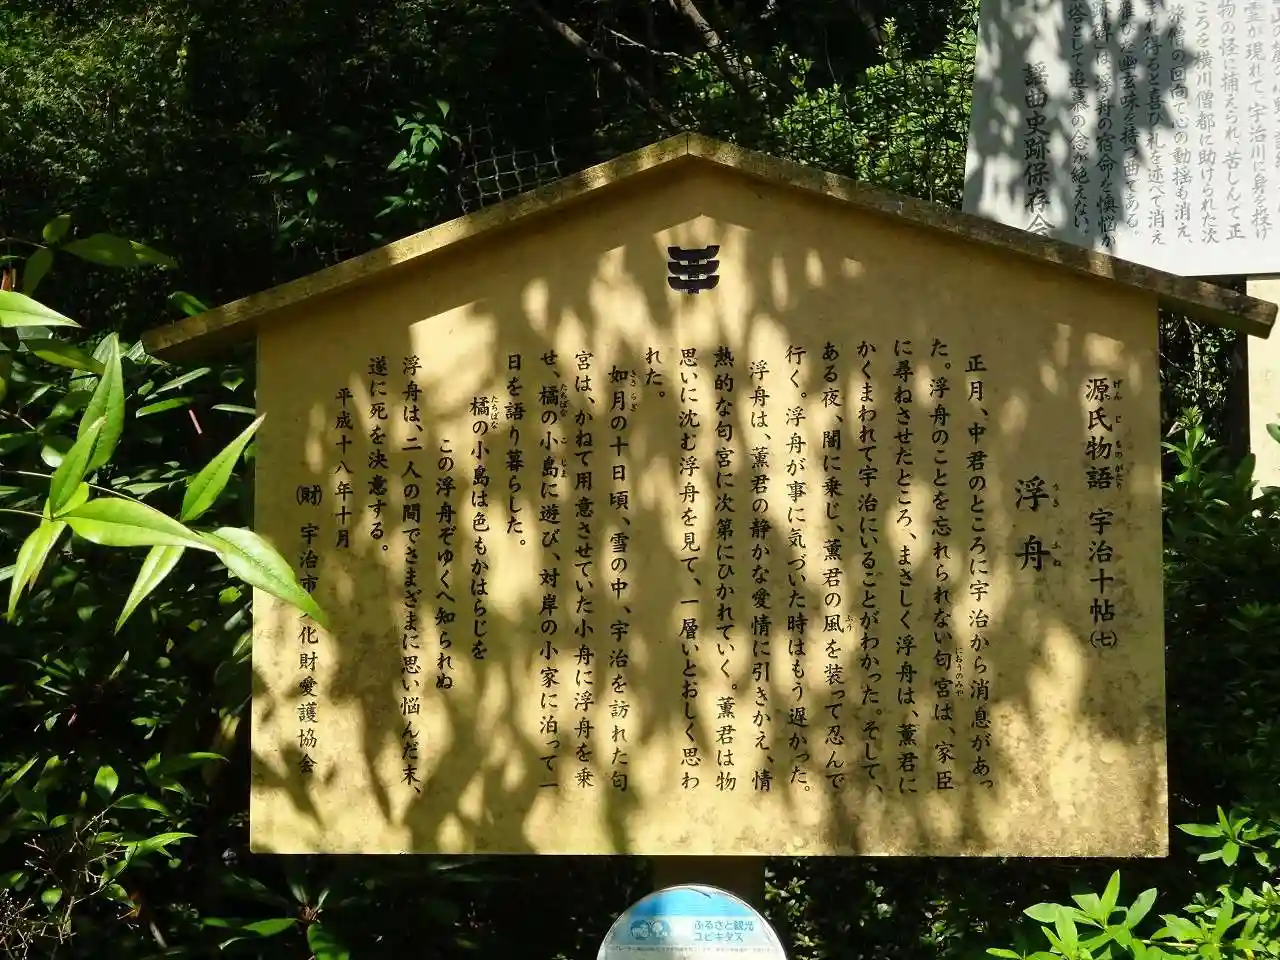 源氏物語 宇治十帖㈦
浮舟
正月、中君のところに宇治から消息があっ
た。浮舟のことを忘れられない匂宮は、家臣
に尋ねさせたところ、まさしく浮舟は、薫君に
かくまわれて宇治にいることがわかった。そして、
ある夜、闇に乗じ、薫君の風を装って忍んで
行く。浮舟が事に気づいた時はもう遅かった。
浮舟は、薫君の静かな愛情に引きかえ、情
熱的な匂宮に次第にひかれていく。薫君は物
思いに沈む浮舟を見て、一層いとおしく思わ
れた。
如月の十日頃、雪の中、宇治を訪れた匂
宮は、かねて用意させていた小舟に浮舟を乗
せ、橘の小島に遊び、対岸の小家に泊って一
日を語り暮らした。
橘の小島は色もかはらじを
この浮舟ぞゆくへ知られぬ
浮舟は、二人の間でさまざまに思い悩んだ末、
遂に死を決意する。
平成十八年十月
㈶ 宇治市文化財愛護協会
霊が現れて、宇治川に身を投げ
物の怪に捕えられ、苦しんで正
ころを横川僧都に助けられた次
旅僧の回向で心の動揺も消え、
まれ得ると喜び礼を述べて消え
幽玄味を持つ曲である。
は、浮舟の宿命を懐悩か
塔として追慕の念が絶えない。
謡曲史跡保存会
ふるさと観光
ユビキタス